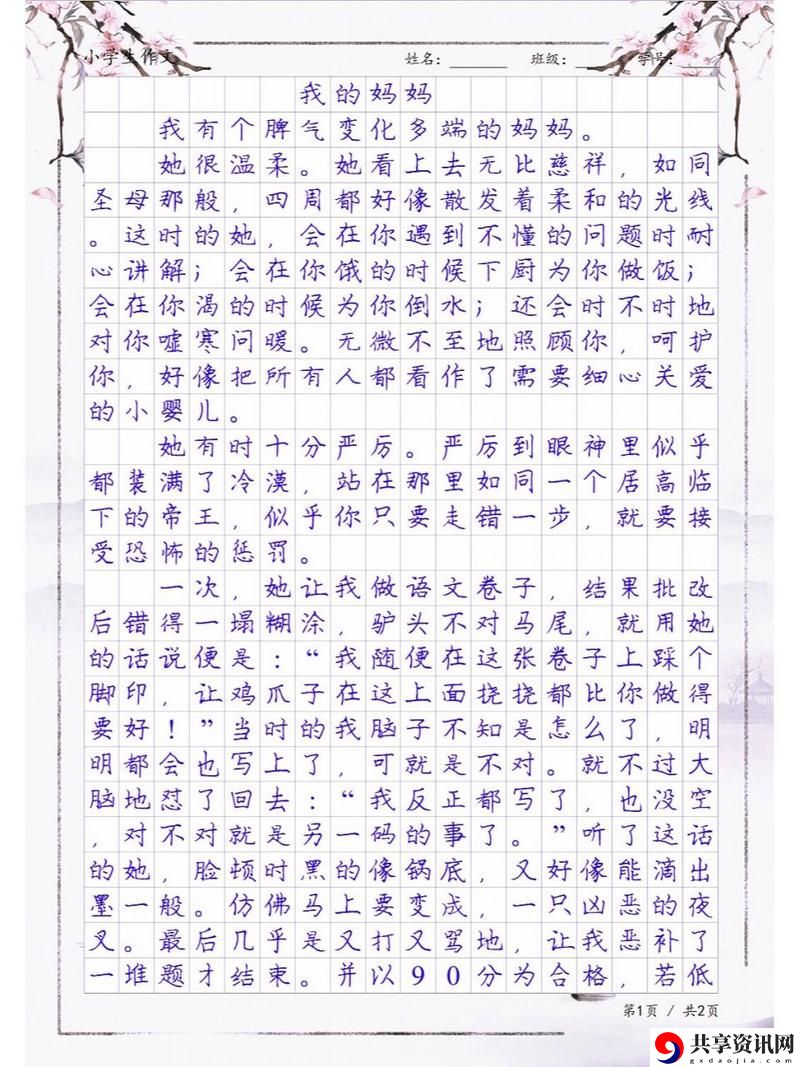 小学生作文
姓名：
班级：
学号：
我的妈妈
我有个脾气变化多端的妈妈。
她很温柔。她看上去无比慈祥，如同
圣母那般，四周都好像散发着柔和的光线
。这时的她，会在你遇到不懂的问题时耐
心讲解；会在你饿的时候下厨为你做饭；
会在你渴的时候为你倒水；还会时不时地
对你嘘寒问暖。无微不至地照顾你，呵护
你，好像把所有人都看作了需要细心关爱
的小婴儿。
她有时十分严厉。严厉到眼神里似乎
都装满了冷漠，站在那里如同一个居高临
下的帝王，似乎你只要走错一步，就要接
受恐怖的惩罚。
一次，她让我做语文卷子，结果批改
后错得一塌糊涂，驴头不对马尾，就用她
的话说便是：“我随便在这张卷子上踩个
脚印，让鸡爪子在这上面挠挠都比你做得
要好！”当时的我脑子不知是怎么了，明
明都会也写上了，可就是不对。就不过大
脑地怼了回去：“我反正都写了，也没空
，对不对就是另一码的事了。”听了这话
的她，脸顿时黑的像锅底，又好像能滴出
墨一般。仿佛马上要变成，一只凶恶的夜
叉。最后几乎是又打又骂地，让我恶补了
一堆题才结束。并以90分为合格，若低
第1页 / 共2页
共享资讯网
gxdaojia.com